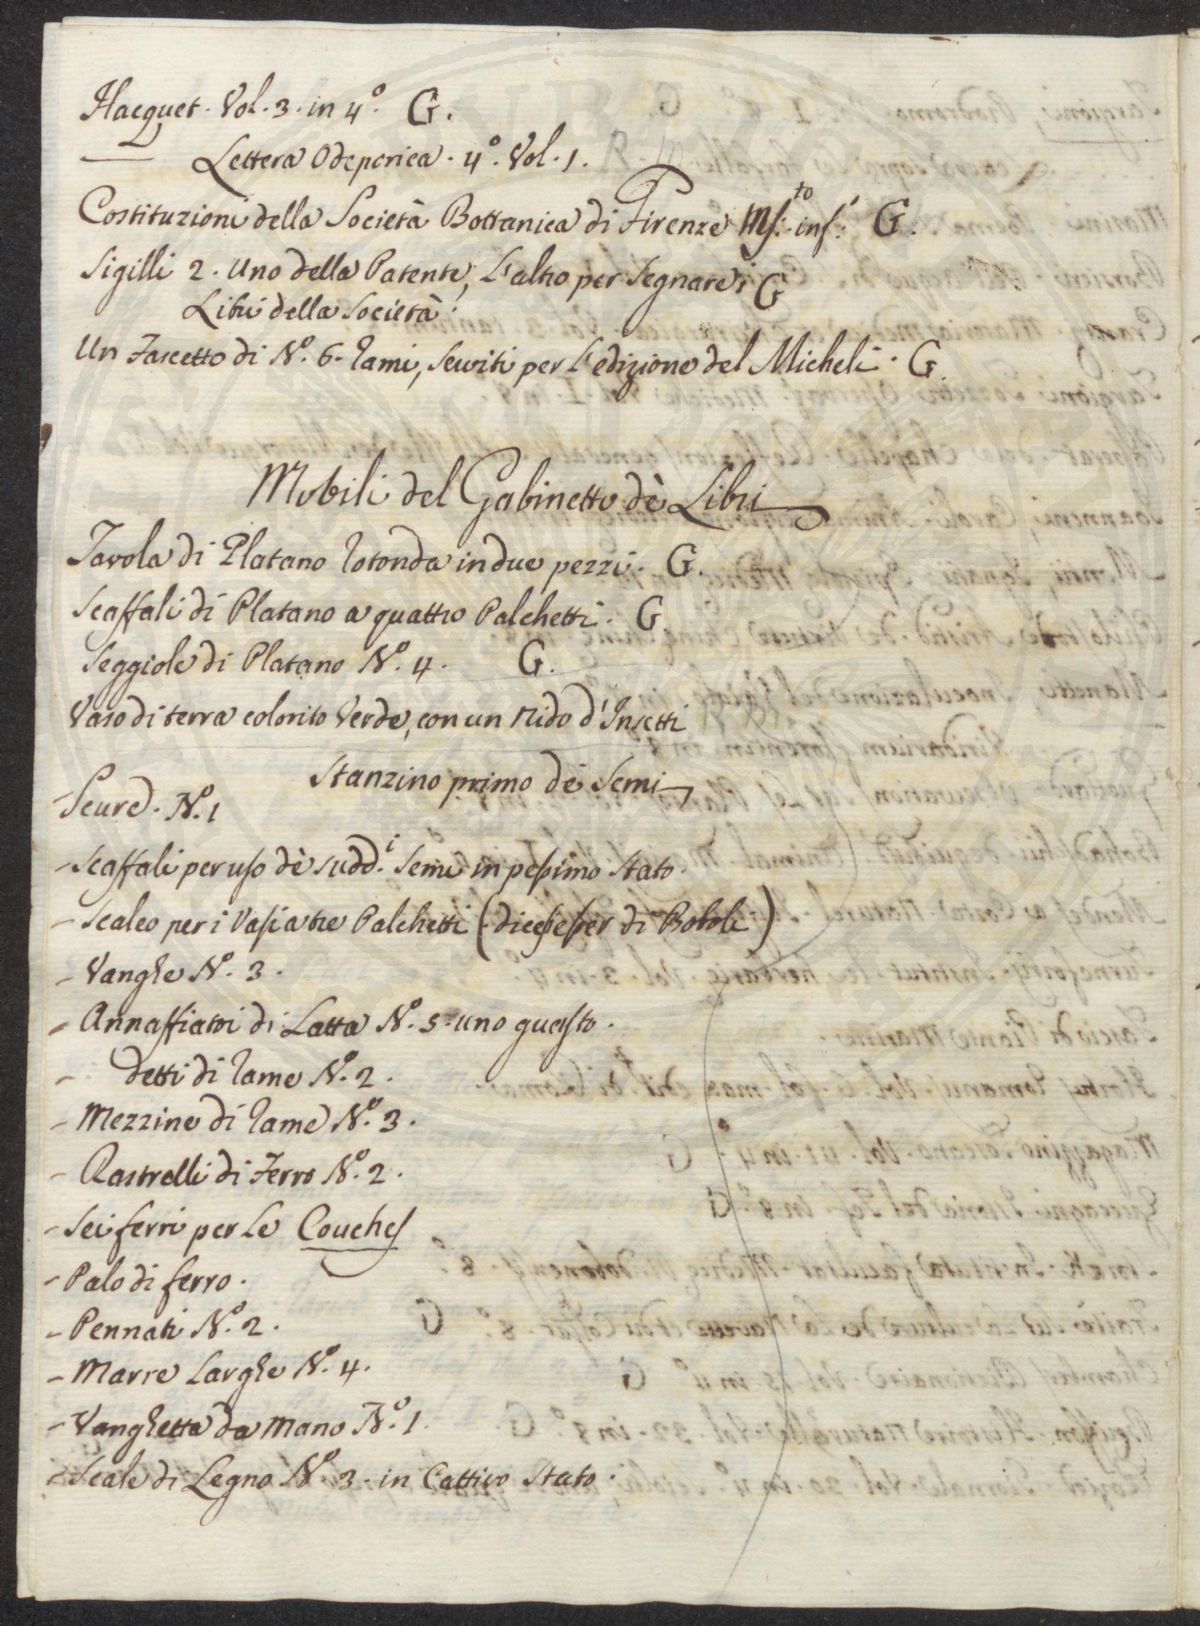 Hacquet. Vol. 3. in 4°. G.
Lettera Odeporica. 4°. Vol. 1.
Costituzioni della Società Bottanica di Firenze Ms:to inf: G.
Sigilli 2. Uno della Patente, L'altro per Segnare i G
Libri della Società.
Un Fascetto di N°. 6. Rami, Serviti per l'edizione del Micheli. G.
Mobili del Gabinetto dè Libri
Tavola di Platano rotonda in due pezzi. G.
Scaffali di Platano a quattro Palchetti. G
Seggiole di Platano N°. 4. G.
Vaso di terra colorito Verde, con un Nido d'Insetti
Stanzino primo dè Semi
- Scure. N°. 1
- Scaffali per uso dè sudd.i Semi in pessimo Stato.
- Scaleo per i Vasi a tre Palchetti (dicesi esser di Boboli)
- Vanghe N°. 3.
- Annaffiatoi di Latta N°. 5. uno guasto.
- detti di Rame N°. 2.
- Mezzine di Rame N°. 3.
- Rastrelli di Ferro N°. 2.
- Sei ferri per le Couches
- Palo di ferro.
- Pennati N°. 2.
- Marre Larghe N°. 4.
- Vanghetta da mano N°. 1.
- Scale di Legno N°. 3. in Cattivo Stato.